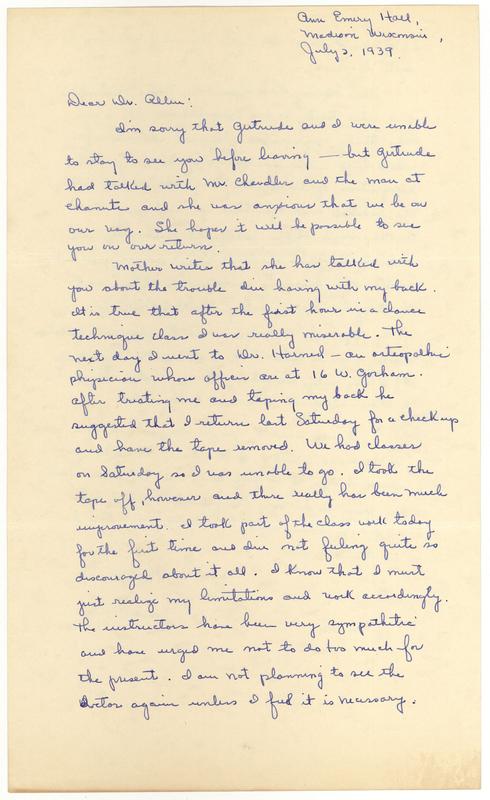 Ann Emery Hall,
Madison Wisconsin,
July 2, 1939.
Dear Dr. Allen:
I'm sorry that Gertrude and I were unable
to stay to see you before leaving — but Gertrude
had talked with Mr. Chandler and the man at
Chanute and she was anxious that we be on
our way. She hopes it will be possible to see
you on our return.
Mother writes that she has talked with
you about the trouble I'm having with my back.
It is true that after the first hour in a dance
technique class I was really miserable. The
next day I went to Dr. Harned - an osteopathic
physician whose offices are at 16 W. Gorham.
After treating me and taping my back he
suggested that I return last Saturday for a check up
and have the tape removed. We had classes
on Saturday so I was unable to go. I took the
tape off, however and there really has been much
improvement. I took part of the class work today
for the first time and I'm not feeling quite so
discouraged about it all. I know that I must
just realize my limitations and work accordingly.
The instructors have been very sympathetic
and have urged me not to do too much for
the present. I am not planning to see the
doctor again unless I feel it is necessary.